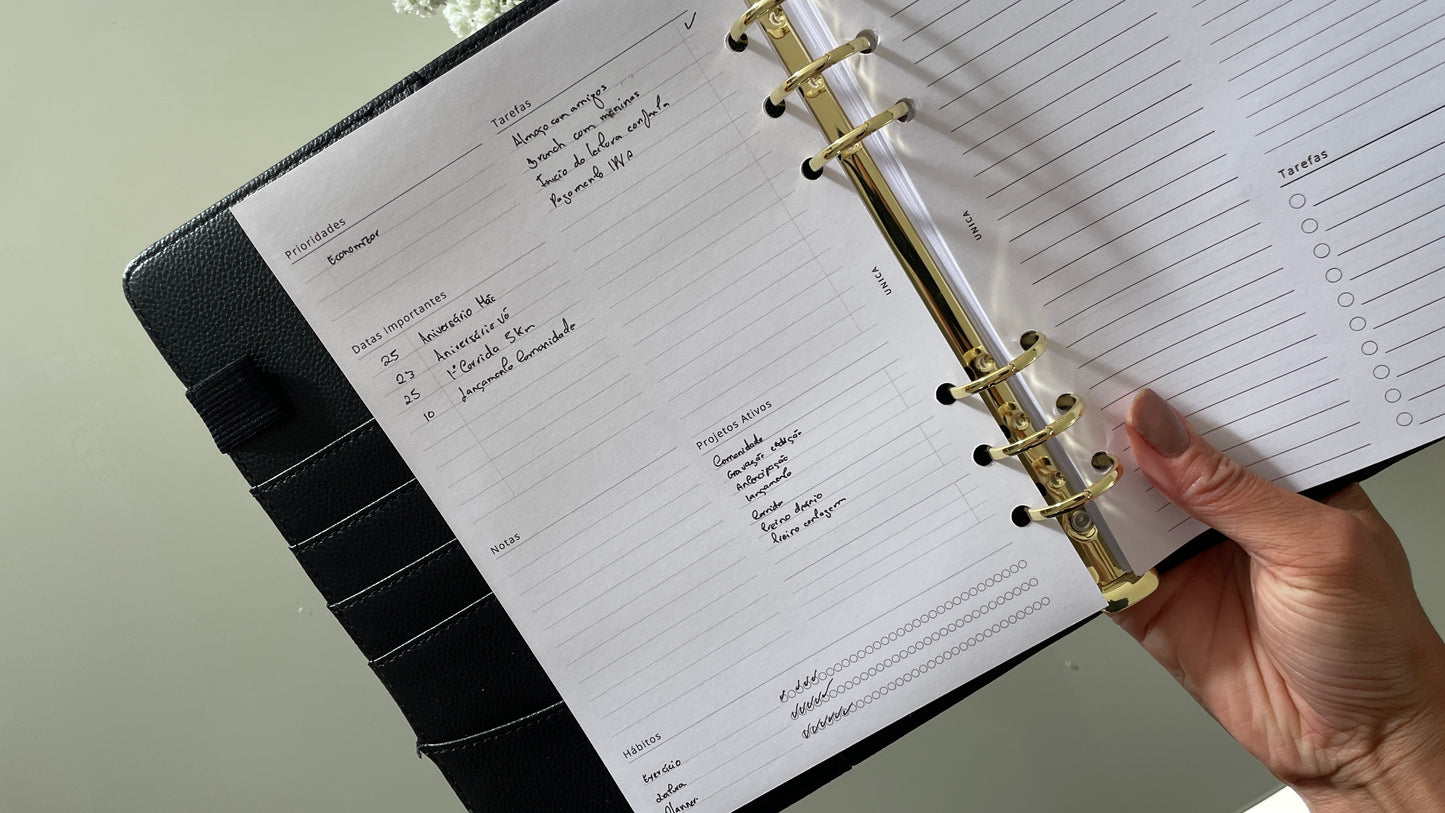 Prioridades
Economizar
Tarefas
Almoço com amigos
Brunch com meninas
Início da leitura conjunta
Pagamento IVA
Datas Importantes
25 Aniversário Mãe
23 Aniversário Vó
25 1ª Corrida 5km
10 Lançamento Comunidade
Notas
Projetos Ativos
Comunidade
Gravação edição
Antecipação
Lançamento
Corrida
treino diário
treino contagem
Hábitos
Exercício
Leitura
Planner
UNICA
UNICA
Tarefas